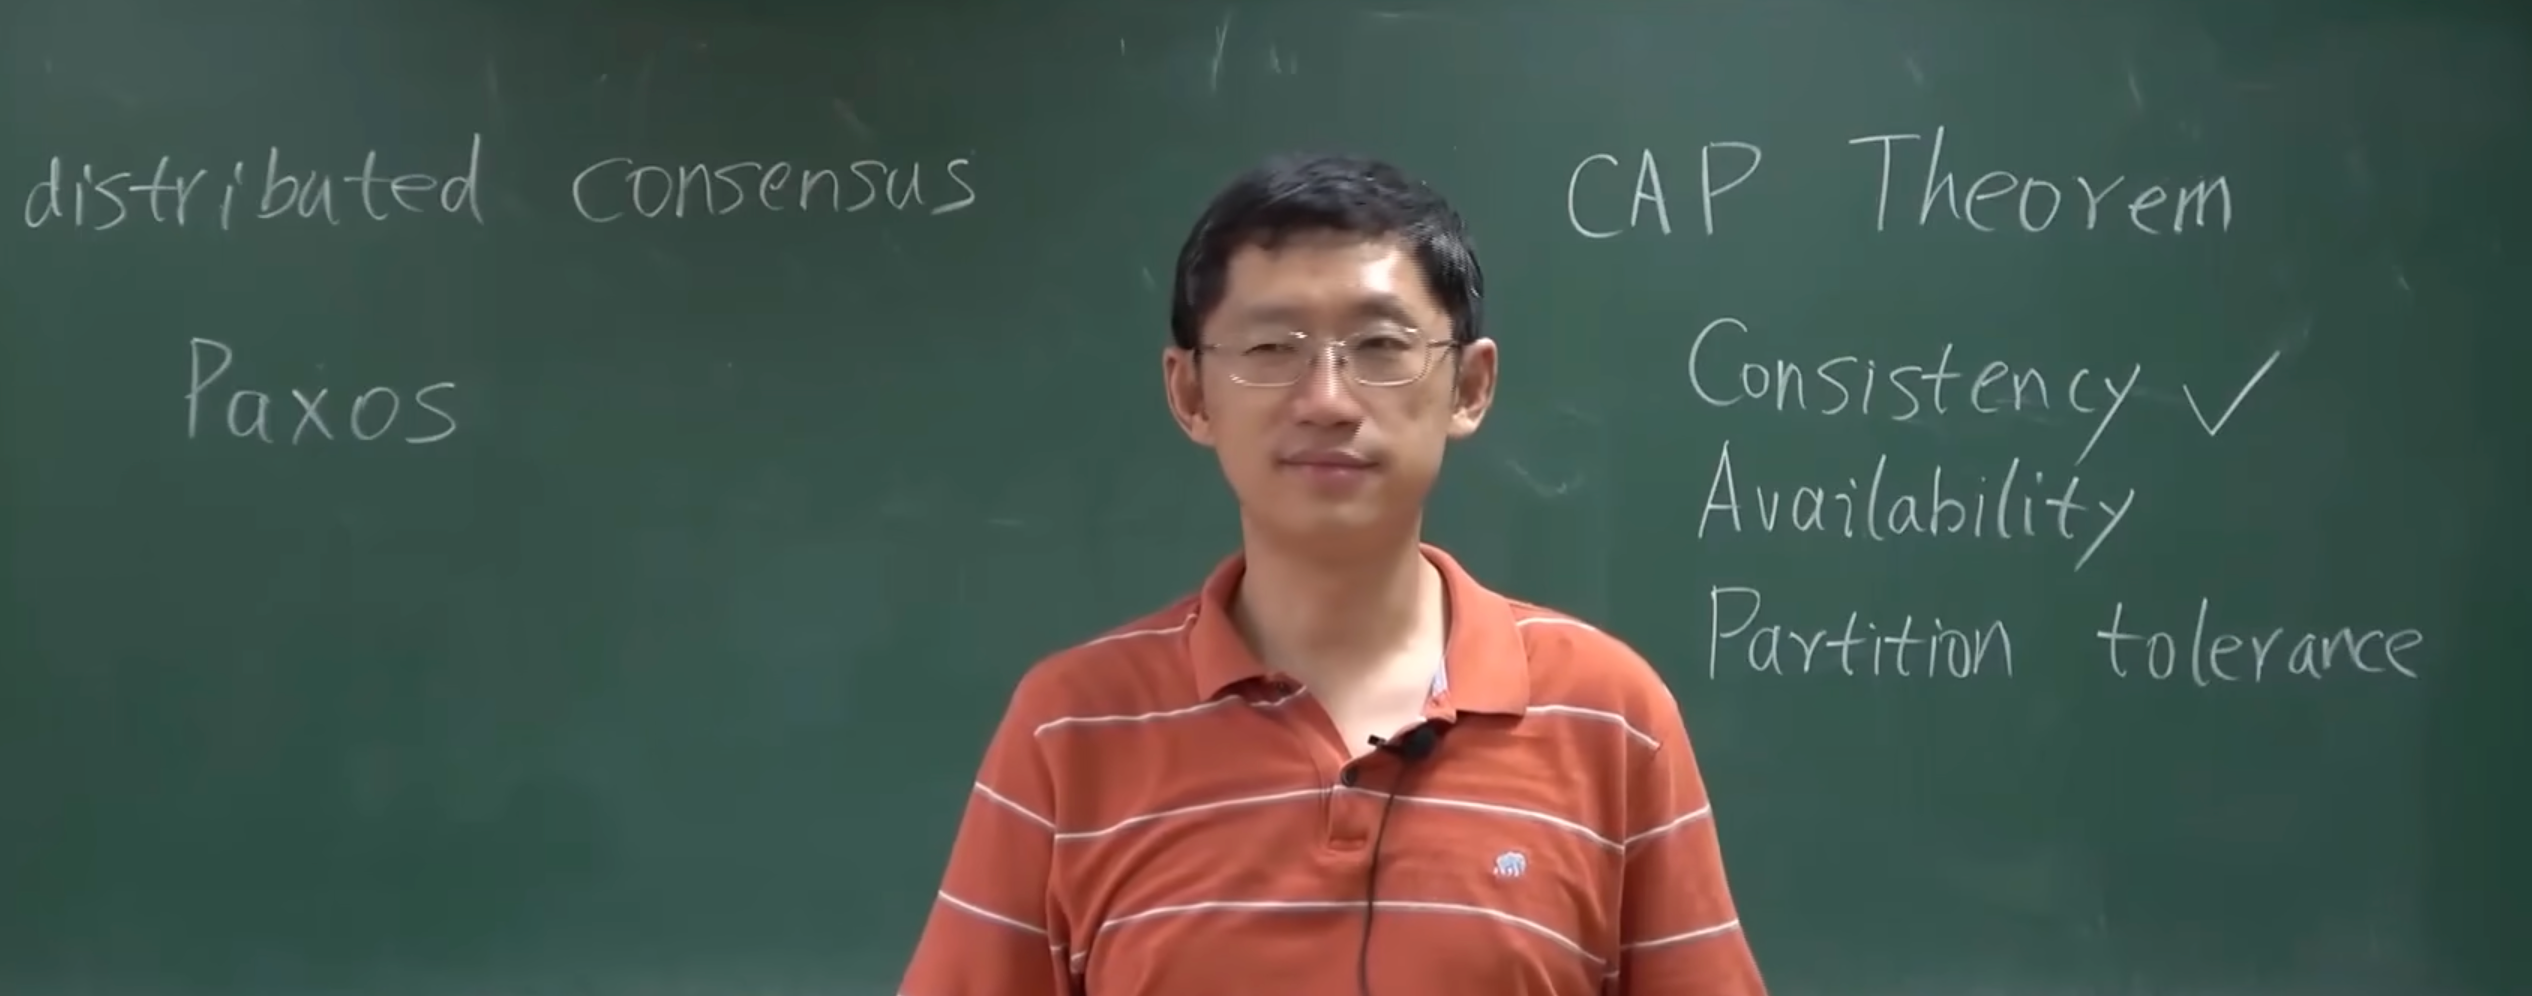 distributed consensus
Paxos
CAP Theorem
Consistency ✓
Availability
Partition tolerance